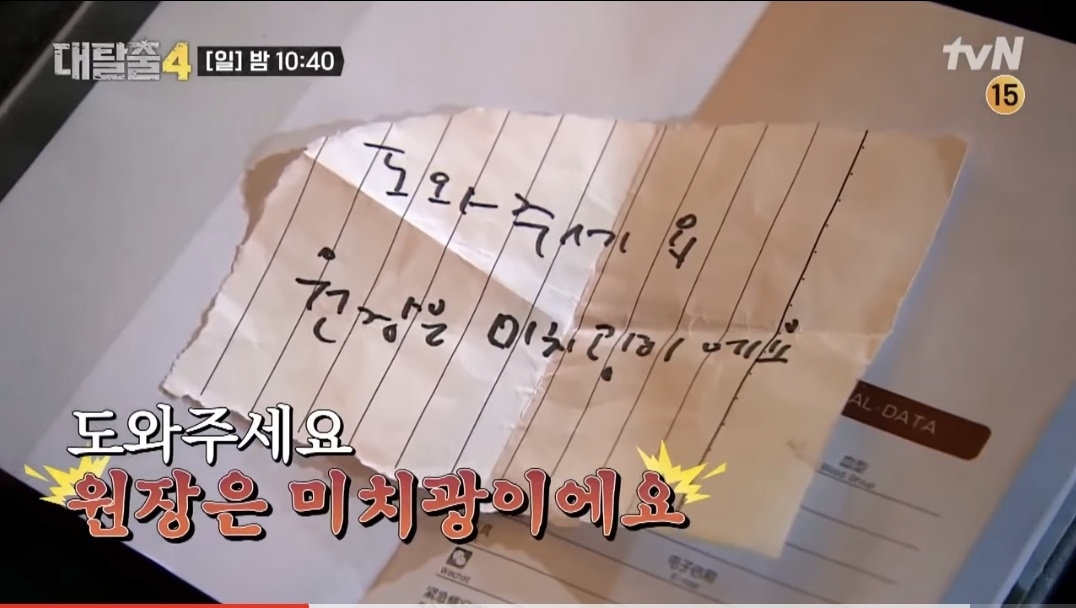 대탈출4 [일] 밤 10:40
tvN
15
도와주세요
원장은 미치광이에요
AL·DATA
血型
Blood Group
도와주세요
원장은 미치광이에요
Wechat
电子邮箱
E-mail